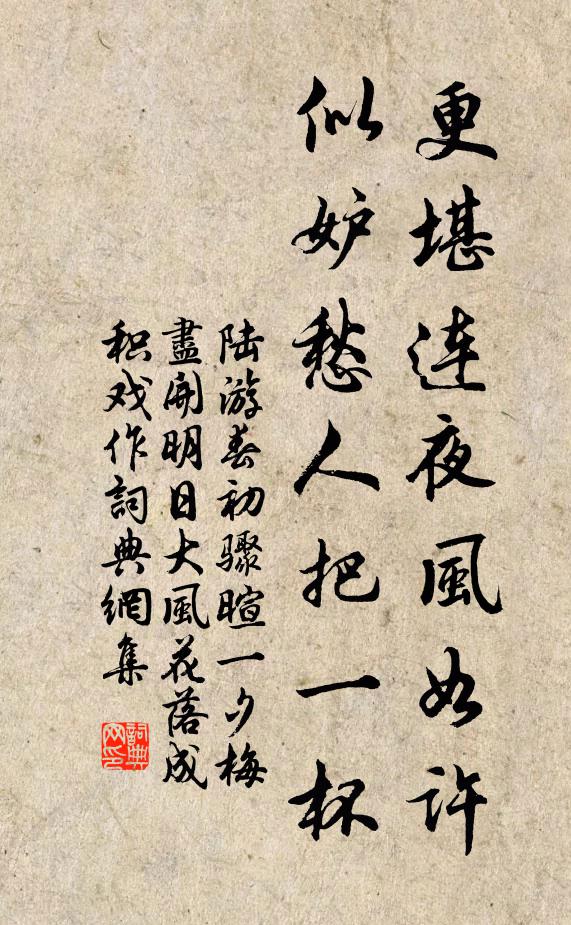 更堪連夜風如許
似妒愁人把一杯
陆游春初骤暄一夕梅
盡開明日大風花落成
积戏作詞典網集
詞典网印